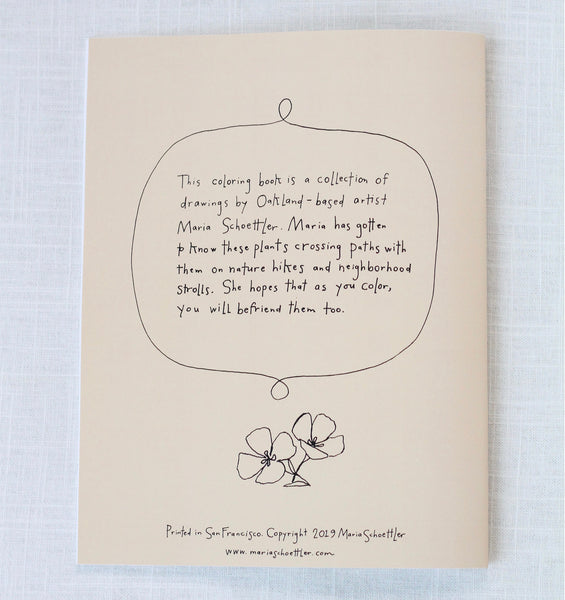 This coloring book is a collection of
drawings by Oakland-based artist
Maria Schoettler. Maria has gotten
to know these plants crossing paths with
them on nature hikes and neighborhood
strolls. She hopes that as you color,
you will befriend them too.
Printed in San Francisco. Copyright 2019 Maria Schoettler
www.mariaschoettler.com